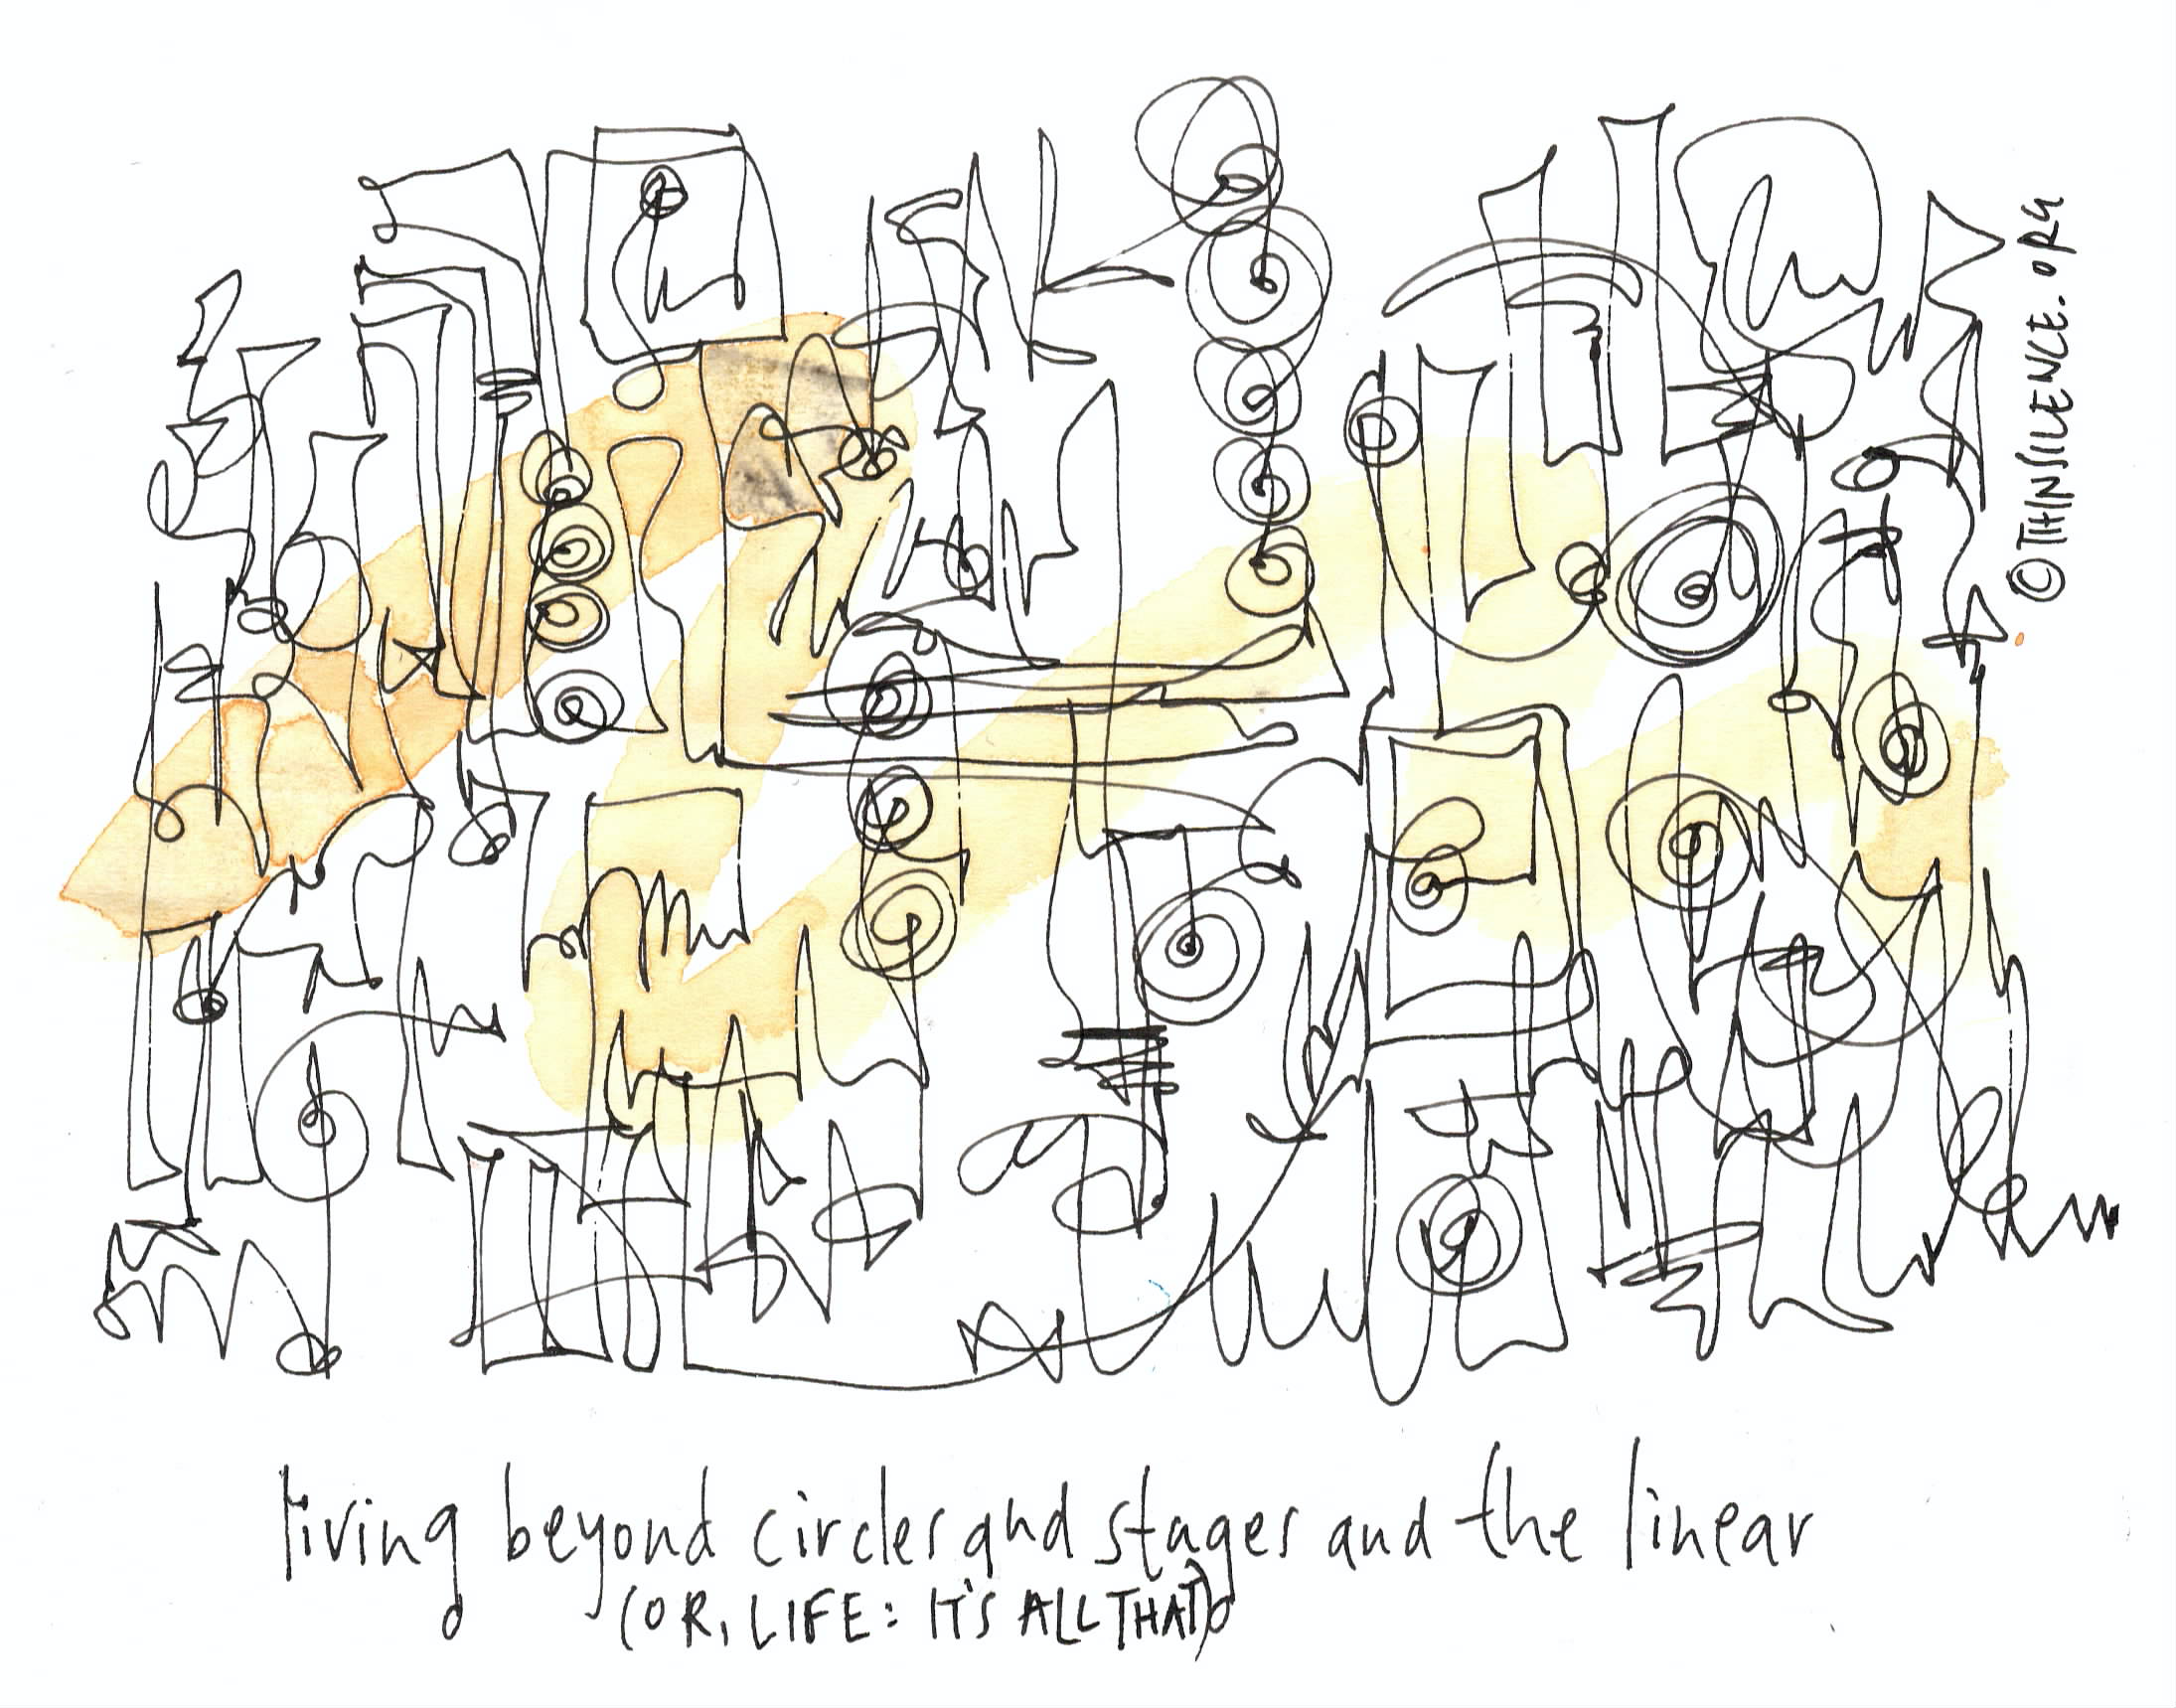 © THINSILENCE.ORG
living beyond circles and stages and the linear
(OR, LIFE: IT'S ALL THAT)